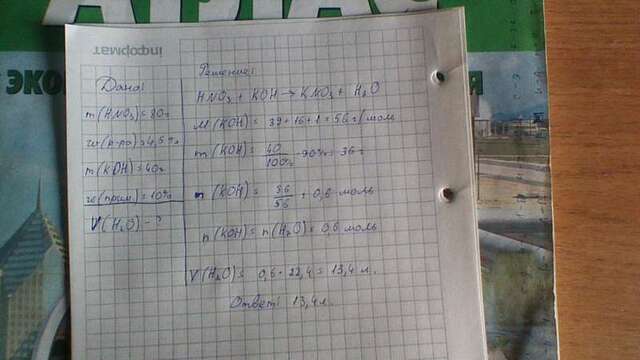 АТЛАС
ЭКО
Я
інформат
Дано:
m(HNO₃)=80г
w(р-ра)=4,5%
m(KOH)=40г
w(прим)=10%
V(H₂O)-?
Решение:
HNO₃ + KOH → KNO₃ + H₂O
M(KOH) = 39+16+1=56 г/моль
m(KOH) = 40/100% · 90% = 36г
n(KOH) = 36/56 = 0,6 моль
n(KOH) = n(H₂O) = 0,6 моль
V(H₂O) = 0,6 · 22,4 = 13,4 л.
Ответ: 13,4л.